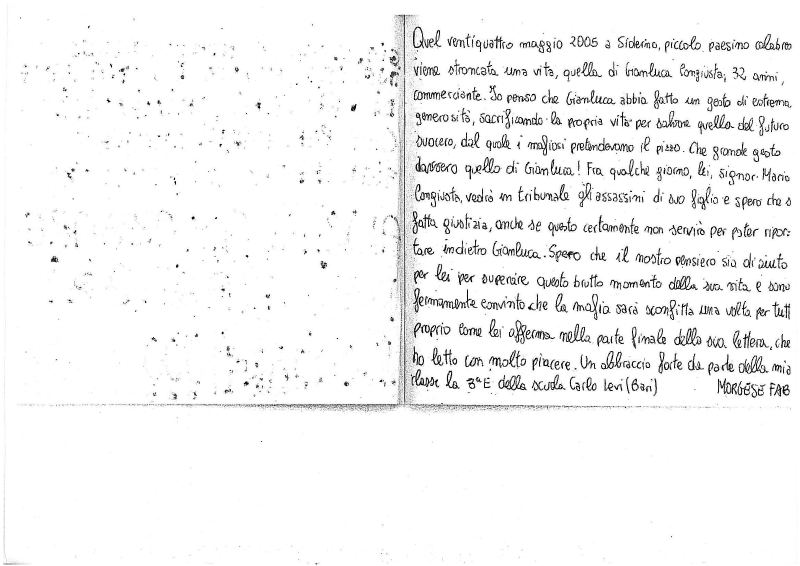 Quel ventiquattro maggio 2005 a Siderno, piccolo paesino calabro
viene stroncata una vita, quella di Gianluca Congiusta, 32 anni,
commerciante. Io penso che Gianluca abbia fatto un gesto di estrema
generosità, sacrificando la propria vita per salvare quella del futuro
suocero, dal quale i mafiosi pretendevano il pizzo. Che grande gesto
davvero quello di Gianluca! Fra qualche giorno, lei, signor Mario
Congiusta, vedrà in tribunale gli assassini di suo figlio e spero che s
fatta giustizia, anche se questo certamente non servirà per poter ripor-
tare indietro Gianluca. Spero che il nostro pensiero sia di aiuto
per lei per superare questo brutto momento della sua vita e sono
fermamente convinto che la mafia sarà sconfitta una volta per tutt
proprio come lei afferma nella parte finale della sua lettera, che
ho letto con molto piacere. Un abbraccio forte da parte della mia
classe la 3ª E della scuola Carlo Levi (Bari) MORGESE FAB